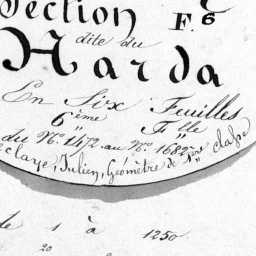 Section F. 6
dite du
Harda
En Six Feuilles
6ème Flle
du N° 1472 au N° 1682
Leclaye, Julien, Géomètre de 1ère classe
de 1 à 1250
20